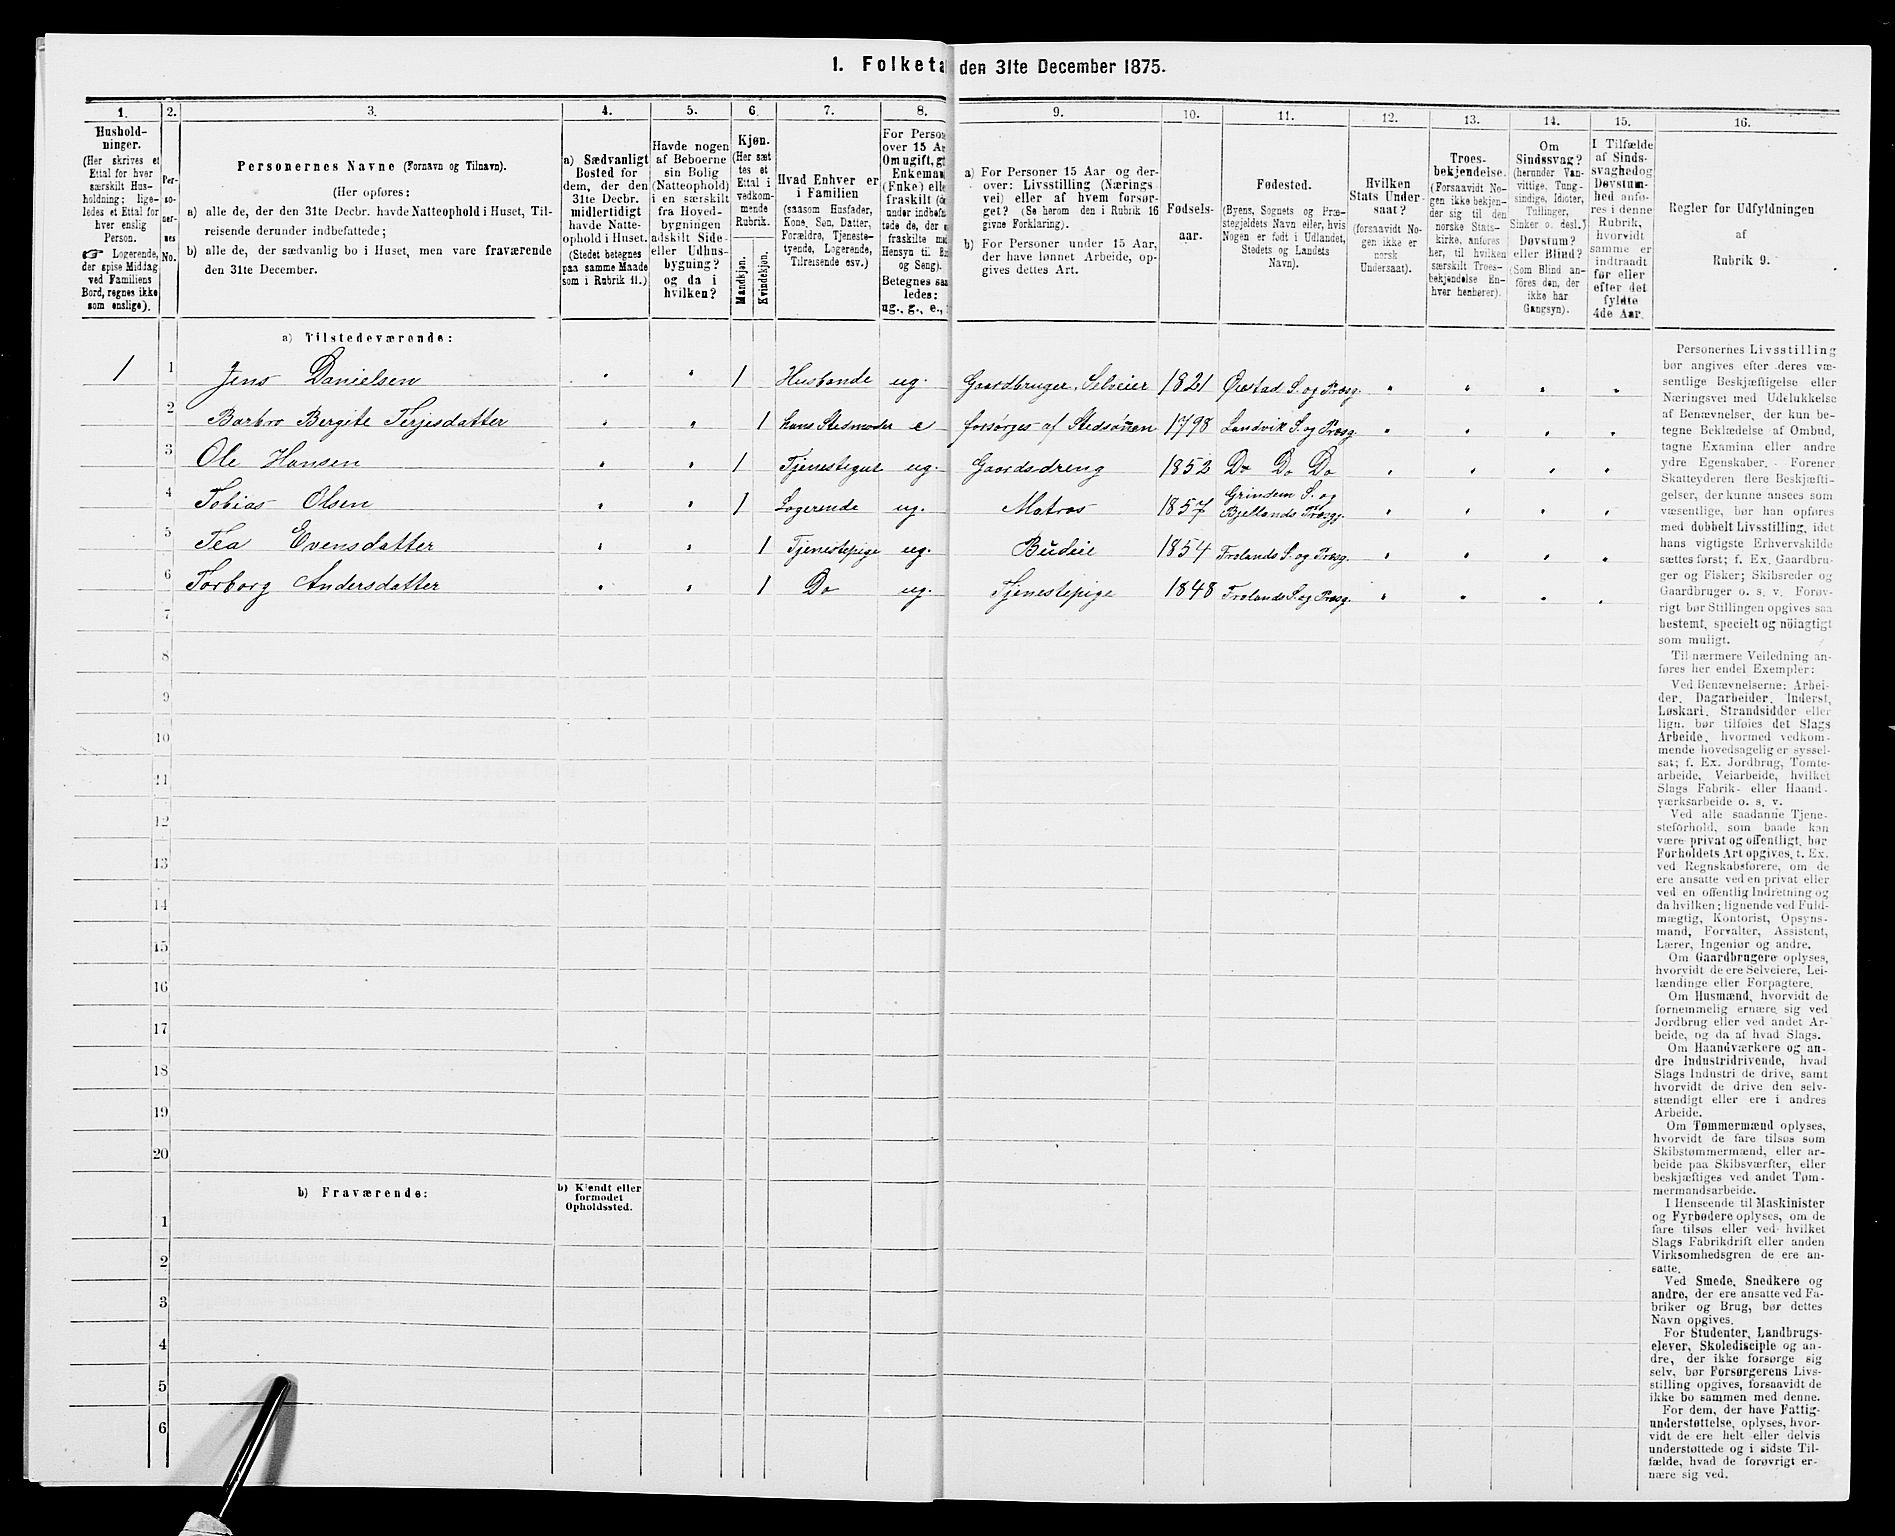 1. Folketa den 31te December 1875.
1.
Hushold-
ninger.
(Her skrives et
Ettal for hver
særskilt Hus-
holdning; lige-
ledes et Ettal for
hver enslig
Person.
☞ Logerende,
der spise Middag
ved Familiens
Bord, regnes ikke
som enslige).
2.
Per-
so-
ner-
nes
No.
3.
Personernes Navne (Fornavn og Tilnavn).
(Her opføres:
a) alle de, der den 31te Decbr. havde Natteophold i Huset, Til-
reisende derunder indbefattede;
b) alle de, der sædvanlig bo i Huset, men vare fraværende
den 31te December.
4.
a) Sædvanligt
Bosted for
dem, der den
31te Decbr.
midlertidigt
havde Natte-
ophold i Huset.
(Stedet betegnes
paa samme Maade
som i Rubrik 11.)
5.
Havde nogen
af Beboerne
sin Bolig
(Natteophold)
i en særskilt
fra Hoved-
bygningen
adskilt Side-
eller Udhus-
bygning?
og da i
hvilken?
6.
Kjøn.
(Her sæt
tes et
Ettal i
vedkom-
mende
Rubrik.
Mandkjøn.
Kvindekjøn.
7.
Hvad Enhver er
i Familien
(saasom Husfader,
Kone, Søn, Datter,
Forældre, Tjeneste-
tyende, Logerende,
Tilreisende osv.)
8.
For Perso
over 15 A
Om ugift, g
Enkema
(Enke) elle
fraskilt (
under indbef
tede de,
fraskilte m
Hensyn til
og Seng).
Betegnes saa
ledes:
ug., g., e.,
9.
a) For Personer 15 Aar og der-
over: Livsstilling (Nærings
vei) eller af hvem forsør-
get? (Se herom den i Rubrik 16
givne Forklaring).
b) For Personer under 15 Aar,
der have lønnet Arbeide, op-
gives dettes Art.
10.
Fødsels-
aar.
11.
Fødested.
(Byens, Sognets og Præ-
stegjeldets Navn eller, hvis
Nogen er født i Udlandet,
Stedets og Landets
Navn).
12.
Hvilken
Stats Under-
saat?
(forsaavidt No-
gen ikke er
norsk
Undersaat).
13.
Troes-
bekjendelse.
(Forsaavidt No-
gen ikke bekjen-
der sig til den
norske Stats-
kirke, anføres
her, til hvilken
særskilt Troes-
bekjendelse En-
hver henhører).
14.
Om
Sindssvag?
(herunder Van-
vittige, Tung-
sindige, Idioter,
Tullinger,
Sinker o. desl.)
Døvstum?
eller Blind?
(Som Blind an-
føres den, der
ikke har
Gangsyn).
15.
I Tilfælde
af Sinds-
svaghed og
Døvstum-
hed anfø-
res i denne
Rubrik,
hvorvidt
samme er
indtraadt
før eller
efter det
fyldte
4de Aar.
16.
Regler for Udfyldningen
af
Rubrik 9.
a) Tilstedeværende:
1 1 Jens Danielsen " " 1 Husbonde ug. Gaardbruger, Selveier 1821 Øiestad S. og Præsg. " " " "
2 Barbro Bergite Terjesdatter " " 1 hans Stedmoder e forsørges af Stedsønen 1798 Landvik S. og Præsg. " " " "
3 Ole Hansen " " 1 Tjenestegut ug. Gaardsdreng 1852 Do Do Do " " " "
4 Tobias Olsen " " 1 Logerende ug. Matros 1857 Grindem S. og
Bjellands Præsgj. " " " "
5 Tea Evensdatter " " 1 Tjenestepige ug. Budeie 1854 Frolands S. og Præsg. " " " "
6 Torborg Andersdatter " " 1 Do ug. Tjenestepige 1848 Frolands S. og Præsg. " " " "
7
8
9
10
11
12
13
14
15
16
17
18
19
20
b) Fraværende:
b) Kjendt eller
formodet
Opholdssted.
1
2
3
4
5
6
Personernes Livsstilling
bør angives efter deres væ-
sentlige Beskjæftigelse eller
Næringsvei med Udelukkelse
af Benævnelser, der kun be-
tegne Beklædelse af Ombud,
tagne Examina eller andre
ydre Egenskaber. - Forener
Skatteyderen flere Beskjæfti-
gelser, der kunne ansees som
væsentlige, bør han opføres
med dobbelt Livsstilling, idet
hans vigtigste Erhvervskilde
sættes først; f. Ex. Gaardbru-
ger og Fisker; Skibsreder og
Gaardbruger o. s. v. Forøv-
rigt bør Stillingen opgives saa
bestemt, specielt og nöiagtigt
som muligt.
Til nærmere Veiledning an-
føres her endel Exempler:
Ved Benævnelserne: Arbei-
der, Dagarbeider, Inderst,
Løskarl, Strandsidder eller
lign. bør tilføies det Slags
Arbeide, hvormed vedkom-
mende hovedsagelig er syssel-
sat; f. Ex. Jordbrug, Tomte-
arbeide, Veiarbeide, hvilket
Slags Fabrik- eller Haand-
værksarbeide o. s. v.
Ved alle saadanne Tjene-
steforhold, som baade kan
være privat og offentligt, bør
Forholdets Art opgives, f. Ex.
ved Regnskabsførere, om de
ere ansatte ved en privat eller
ved en offentlig Indretning og
da hvilken; lignende ved Fuld-
mægtig, Kontorist, Opsyns-
mand, Forvalter, Assistent,
Lærer, Ingeniør og andre.
Om Gaardbrugere oplyses,
hvorvidt de ere Selveiere, Lei-
lændinge eller Forpagtere.
Om Husmænd, hvorvidt de
fornemmelig ernære sig ved
Jordbrug eller ved andet Ar-
beide, og da af hvad Slags.
Om Haandværkere og an-
dre Industridrivende, hvad
Slags Industri de drive, samt
hvorvidt de drive den selv-
stændigt eller ere i andres
Arbeide.
Om Tømmermænd oplyses,
hvorvidt de fare tilsøs som
Skibstømmermænd, eller ar-
beide paa Skibsværfter, eller
beskjæftiges ved andet Tøm-
mermandsarbeide.
I Henseende til Maskinister
og Fyrbødere oplyses, om de
fare tilsøs eller ved hvilket
Slags Fabrikdrift eller anden
Virksomhedsgren de ere an-
satte.
Ved Smede, Snedkere og
andre, der ere ansatte ved Fa-
briker og Brug, bør dettes
Navn opgives.
For Studenter, Landbrugs-
elever, Skoledisciple og an-
dre, der ikke forsørge sig
selv, bør Forsørgerens Livs-
stilling opgives, forsaavidt de
ikke bo sammen med denne.
For dem, der have Fattig-
understøttelse, oplyses, hvor-
vidt de ere helt eller delvis
understøttede og i sidste Til-
fælde, hvad de forøvrigt er-
nære sig ved.